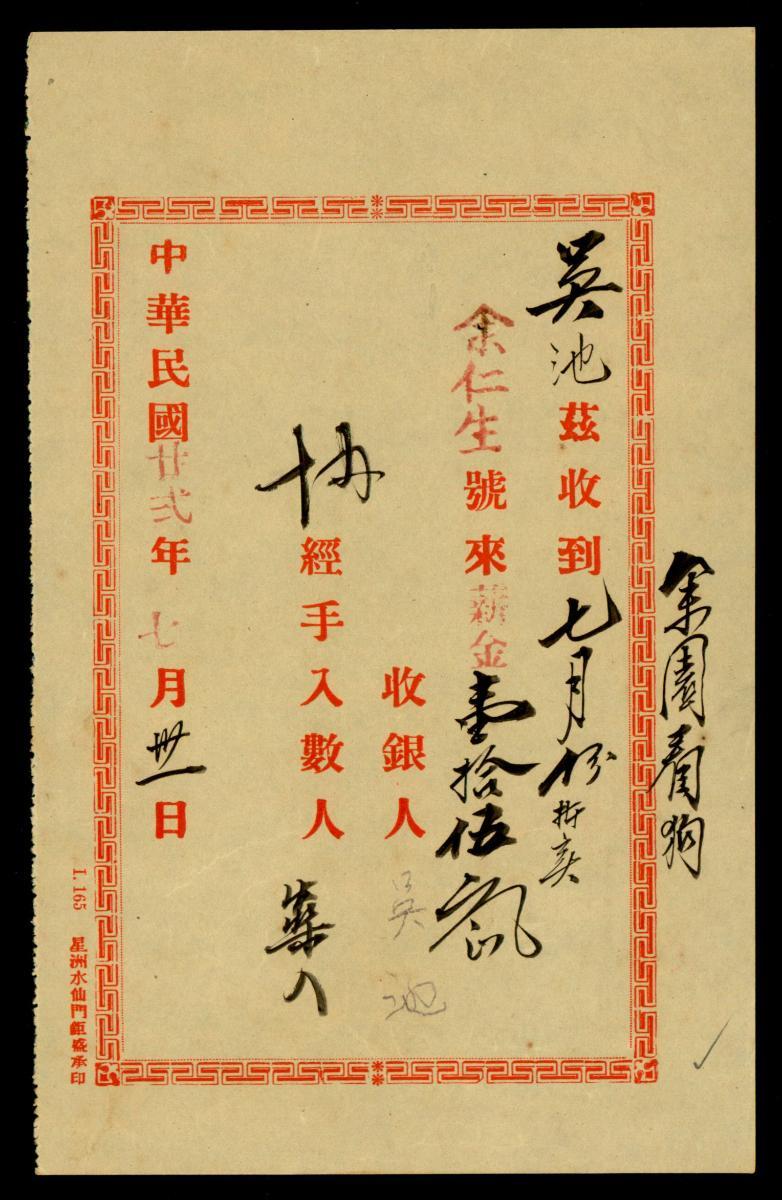 余園看狗
吳池茲收到七月份折亥
余仁生號來薪金壹拾伍
收銀人吳池
協經手入數人
中華民國廿弍年七月卅一日
I. 165 星洲水仙門鉅盛承印